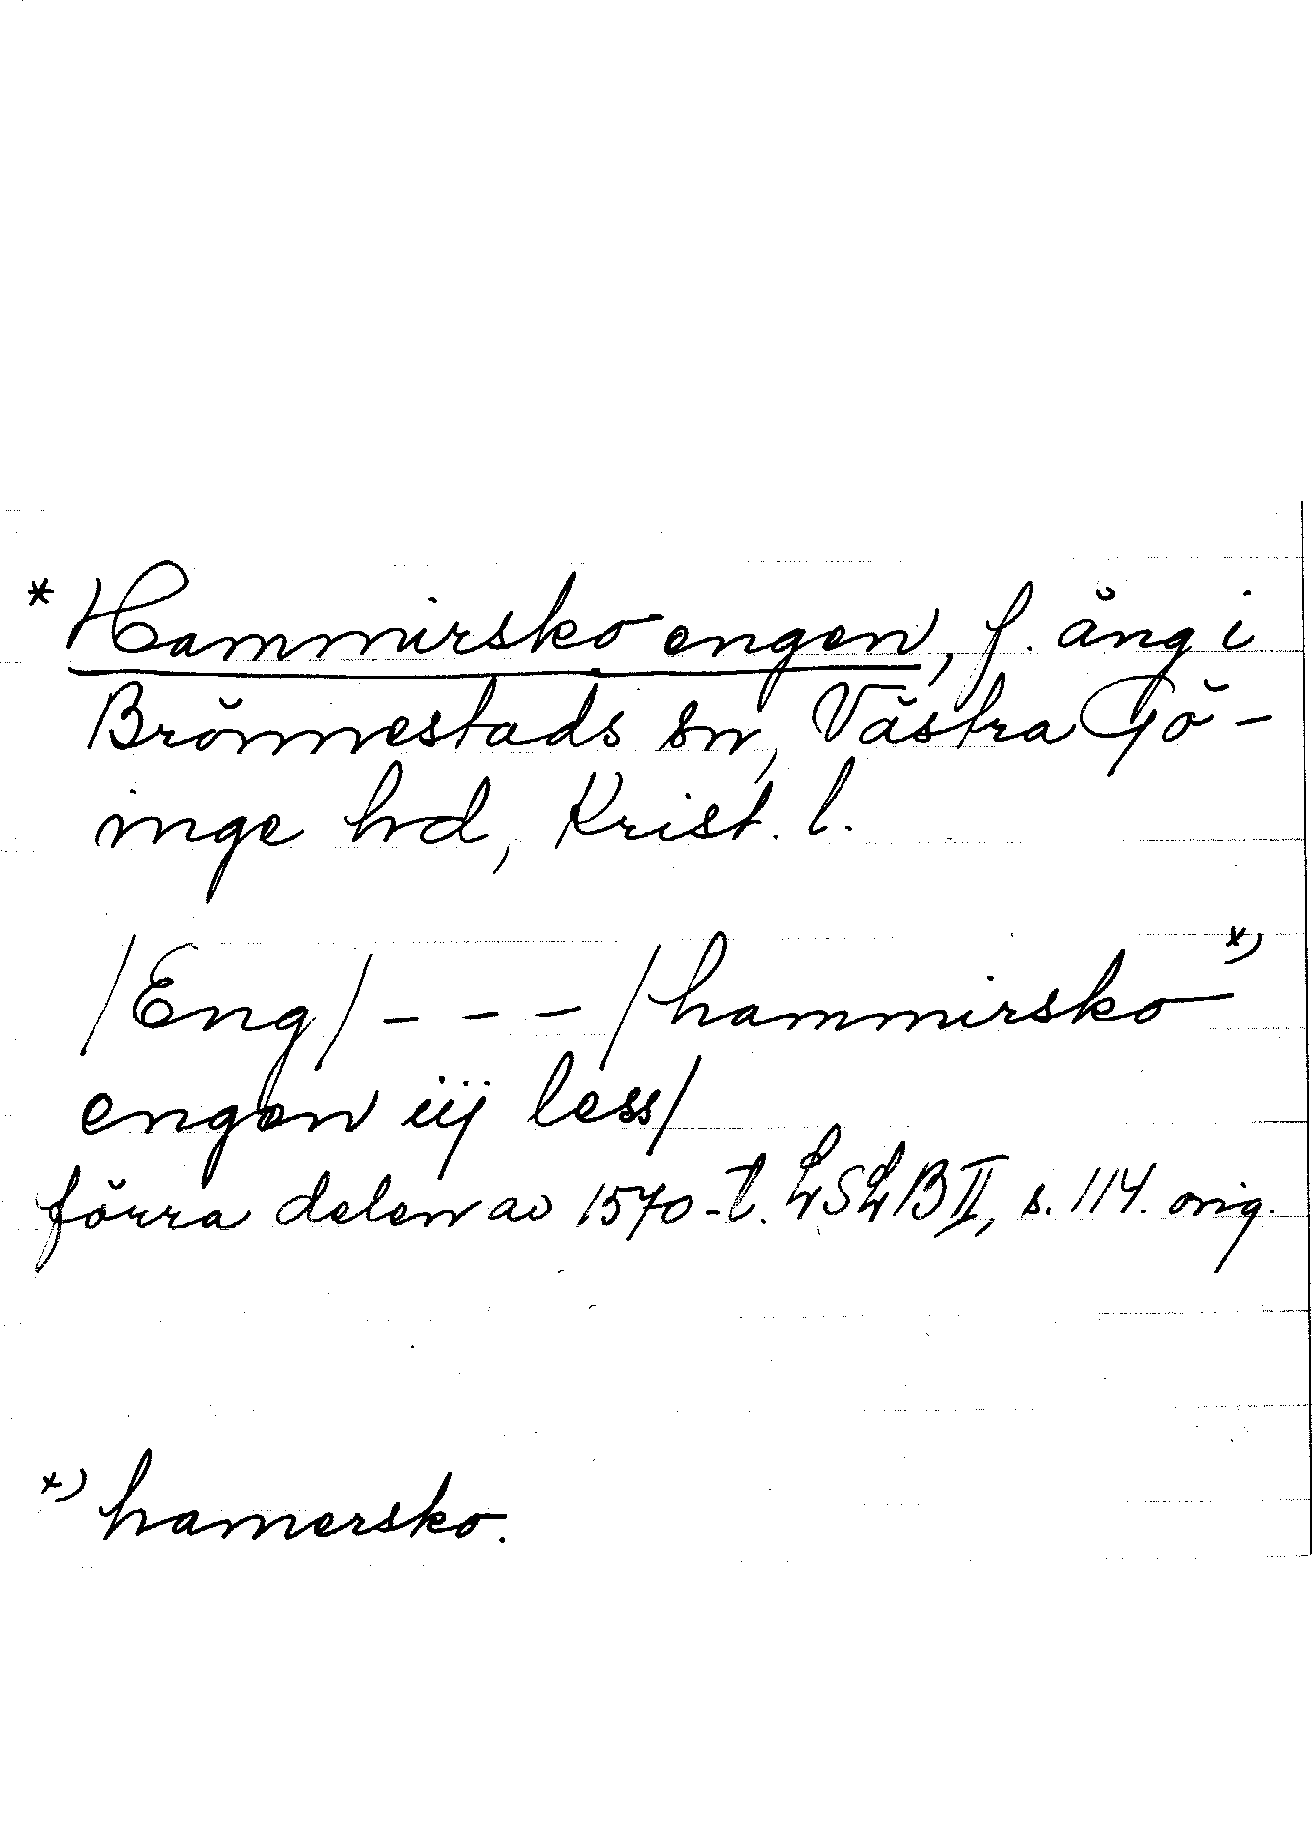 * Hammirsko engen, f. äng i
Brönnestads sn, Västra Gö-
inge hd, Krist. l.
/Eng/ - - - /hammirsko *)
engen iij less/
förra delen av 1570-t. LSLB II, s. 114. orig.
*) hamersko.